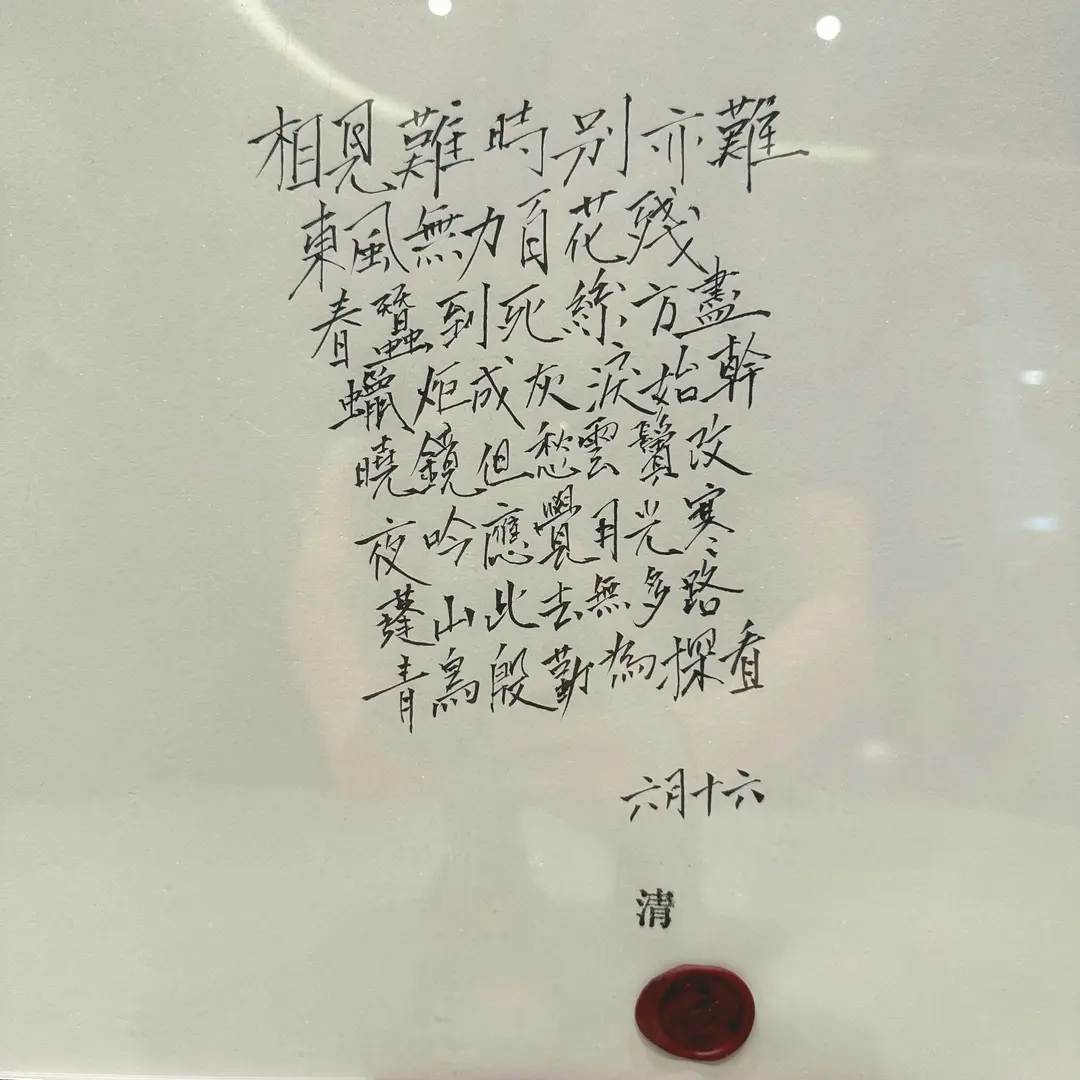 相見難時别亦難
東風無力百花殘
春蠶到死絲方盡
蠟炬成灰淚始幹
曉鏡但愁雲鬢改
夜吟應覺月光寒
蓬山此去無多路
青鳥殷勤為探看
六月十六
清